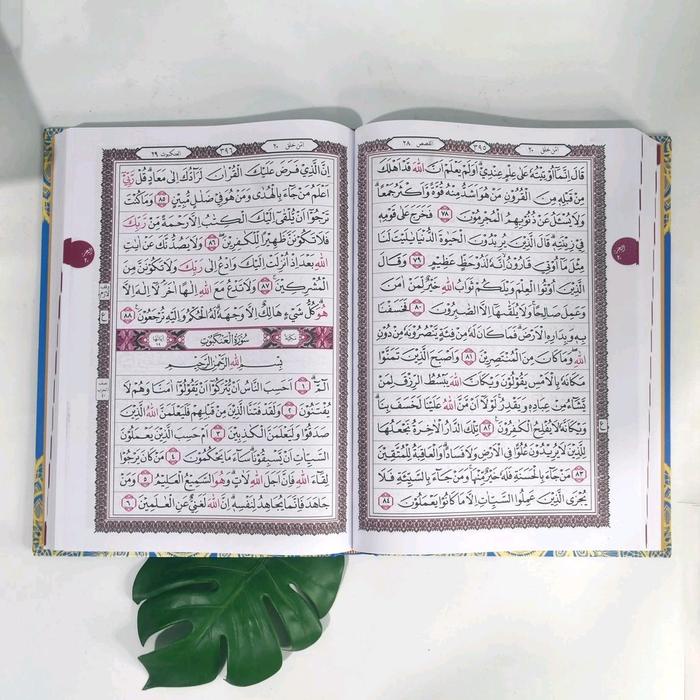 امن خلق ٢٠
٣٩٥
القصص ٢٨
قَالَ اِنَّمَٓا اُوتِيتُهُ عَلٰى عِلْمٍ عِنْدِيۜ اَوَلَمْ يَعْلَمْ اَنَّ اللّٰهَ قَدْ اَهْلَكَ
مِنْ قَبْلِهِ مِنَ الْقُرُونِ مَنْ هُوَ اَشَدُّ مِنْهُ قُوَّةً وَاَكْثَرُ جَمْعًا
وَلَا يُسْـَٔلُ عَنْ ذُنُوبِهِمُ الْمُجْرِمُونَ ٧٨ فَخَرَجَ عَلٰى قَوْمِهِ
فِي زِينَتِهِ قَالَ الَّذِينَ يُرِيدُونَ الْحَيٰوةَ الدُّنْيَا يَا لَيْتَ لَنَا
مِثْلَ مَٓا اُوتِيَ قَارُونُ اِنَّهُ لَذُو حَظٍّ عَظِيمٍ ٧٩ وَقَالَ
الَّذِينَ اُوتُوا الْعِلْمَ وَيْلَكُمْ ثَوَابُ اللّٰهِ خَيْرٌ لِمَنْ اٰمَنَ
وَعَمِلَ صَالِحًا وَلَا يُلَقّٰيهَٓا اِلَّا الصَّابِرُونَ ٨٠ فَخَسَفْنَا
بِهِ وَبِدَارِهِ الْاَرْضَ فَمَا كَانَ لَهُ مِنْ فِئَةٍ يَنْصُرُونَهُ مِنْ دُونِ
اللّٰهِ وَمَا كَانَ مِنَ الْمُنْتَصِرِينَ ٨١ وَاَصْبَحَ الَّذِينَ تَمَنَّوْا
مَكَانَهُ بِالْاَمْسِ يَقُولُونَ وَيْكَاَنَّ اللّٰهَ يَبْسُطُ الرِّزْقَ لِمَنْ
يَشَٓاءُ مِنْ عِبَادِهِ وَيَقْدِرُ لَوْلَٓا اَنْ مَنَّ اللّٰهُ عَلَيْنَا لَخَسَفَ بِنَا
وَيْكَاَنَّهُ لَا يُفْلِحُ الْكَافِرُونَ ٨٢ تِلْكَ الدَّارُ الْاٰخِرَةُ نَجْعَلُهَا
لِلَّذِينَ لَا يُرِيدُونَ عُلُوًّا فِي الْاَرْضِ وَلَا فَسَادًا وَالْعَاقِبَةُ لِلْمُتَّقِينَ
٨٣ مَنْ جَٓاءَ بِالْحَسَنَةِ فَلَهُ خَيْرٌ مِنْهَا وَمَنْ جَٓاءَ بِالسَّيِّئَةِ فَلَا
يُجْزَى الَّذِينَ عَمِلُوا السَّيِّـَٔاتِ اِلَّا مَا كَانُوا يَعْمَلُونَ ٨٤
الجزء
٢٠
ع
امن خلق ٢٠
٣٩٦
العنكبوت ٢٩
اِنَّ الَّذِي فَرَضَ عَلَيْكَ الْقُرْاٰنَ لَرَٓادُّكَ اِلٰى مَعَادٍ قُلْ رَبِّٓي
اَعْلَمُ مَنْ جَٓاءَ بِالْهُدٰى وَمَنْ هُوَ فِي ضَلَالٍ مُبِينٍ ٨٥ وَمَا كُنْتَ
تَرْجُٓوا اَنْ يُلْقٰٓى اِلَيْكَ الْكِتٰبُ اِلَّا رَحْمَةً مِنْ رَبِّكَ
فَلَا تَكُونَنَّ ظَهِيرًا لِلْكٰفِرِينَ ٨٦ وَلَا يَصُدُّنَّكَ عَنْ اٰيٰتِ
اللّٰهِ بَعْدَ اِذْ اُنْزِلَتْ اِلَيْكَ وَادْعُ اِلٰى رَبِّكَ وَلَا تَكُونَنَّ مِنَ
الْمُشْرِكِينَ ٨٧ وَلَا تَدْعُ مَعَ اللّٰهِ اِلٰهًا اٰخَرَ لَٓا اِلٰهَ اِلَّا
هُوَ كُلُّ شَيْءٍ هَالِكٌ اِلَّا وَجْهَهُ لَهُ الْحُكْمُ وَاِلَيْهِ تُرْجَعُونَ ٨٨
سُورَةُ الْعَنْكَبُوتِ
بِسْمِ اللّٰهِ الرَّحْمٰنِ الرَّحِيمِ
الٓمٓ ١ اَحَسِبَ النَّاسُ اَنْ يُتْرَكُٓوا اَنْ يَقُولُٓوا اٰمَنَّا وَهُمْ لَا
يُفْتَنُونَ ٢ وَلَقَدْ فَتَنَّا الَّذِينَ مِنْ قَبْلِهِمْ فَلَيَعْلَمَنَّ اللّٰهُ الَّذِينَ
صَدَقُوا وَلَيَعْلَمَنَّ الْكٰذِبِينَ ٣ اَمْ حَسِبَ الَّذِينَ يَعْمَلُونَ
السَّيِّـَٔاتِ اَنْ يَسْبِقُونَا سَٓاءَ مَا يَحْكُمُونَ ٤ مَنْ كَانَ يَرْجُوا
لِقَٓاءَ اللّٰهِ فَاِنَّ اَجَلَ اللّٰهِ لَاٰتٍ وَهُوَ السَّمِيعُ الْعَلِيمُ ٥ وَمَنْ
جَاهَدَ فَاِنَّمَا يُجَاهِدُ لِنَفْسِهِ اِنَّ اللّٰهَ لَغَنِيٌّ عَنِ الْعٰلَمِينَ ٦
الجزء
٢٠